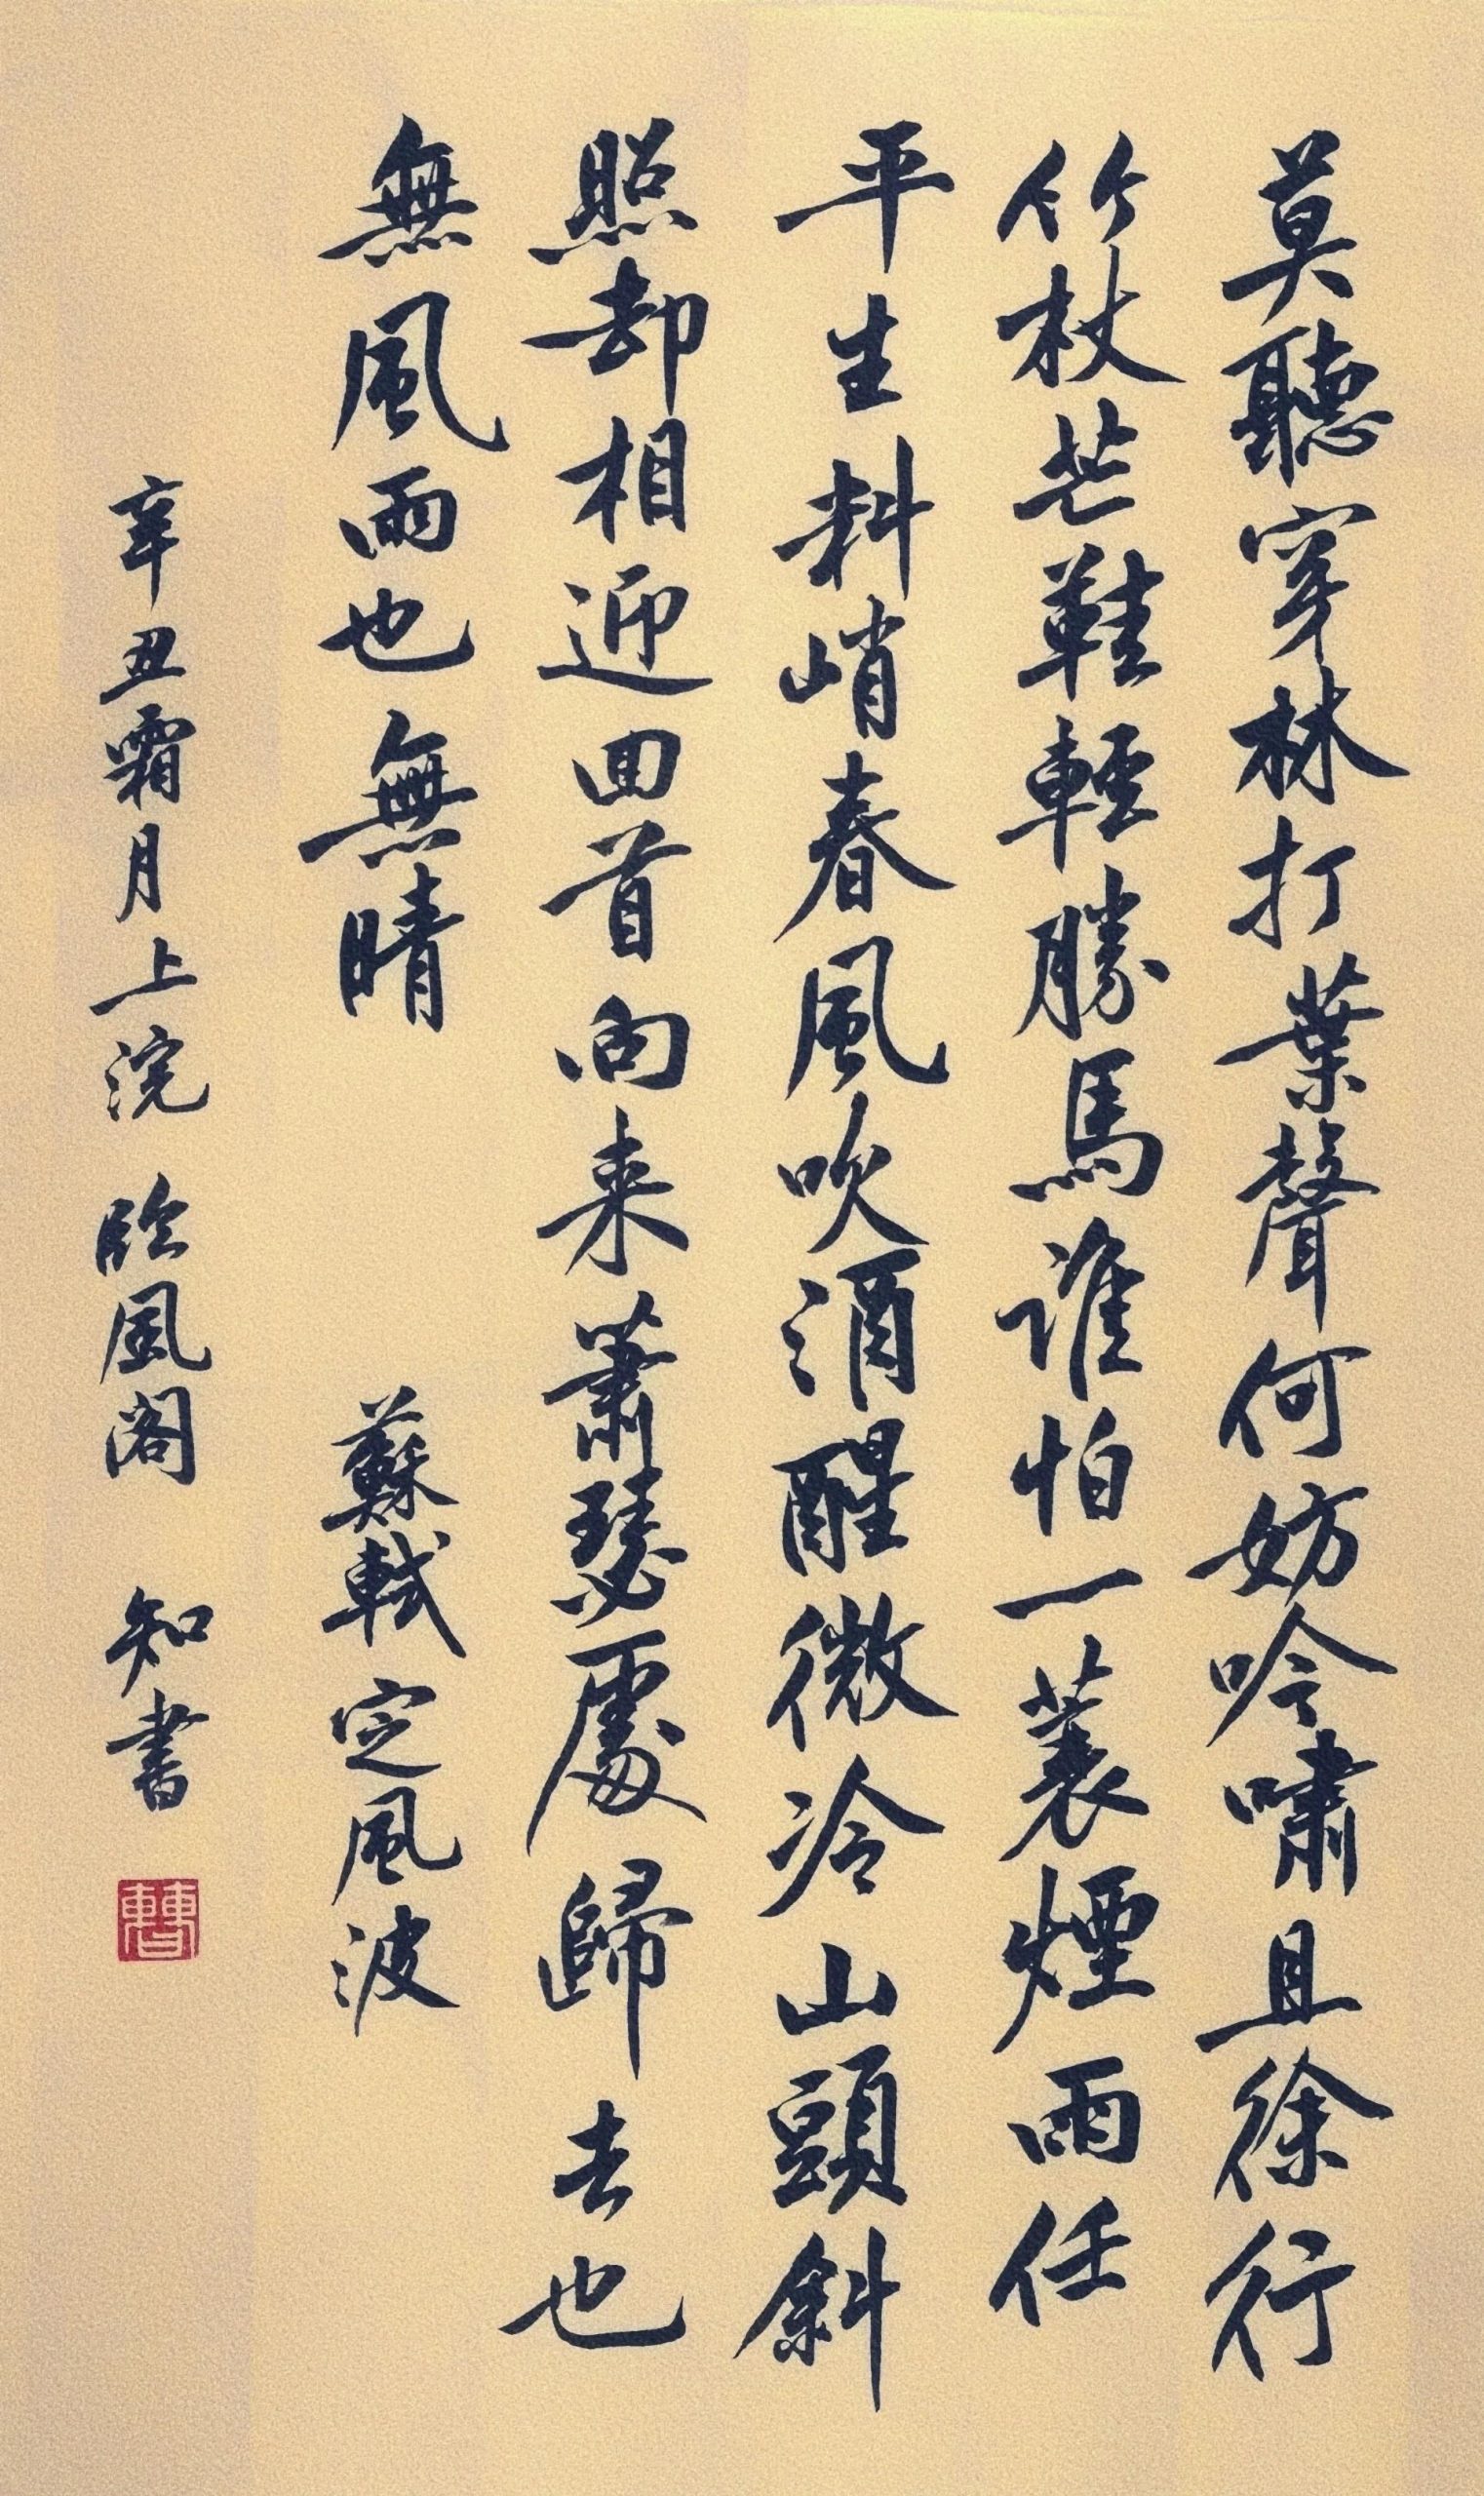 莫聽穿林打葉聲何妨吟嘯且徐行
竹杖芒鞋輕勝馬誰怕一蓑煙雨任
平生料峭春風吹酒醒微冷山頭斜
照却相迎回首向来蕭瑟處歸去也
無風雨也無晴
蘇軾定風波
辛丑霜月上浣 臨風閣 知書